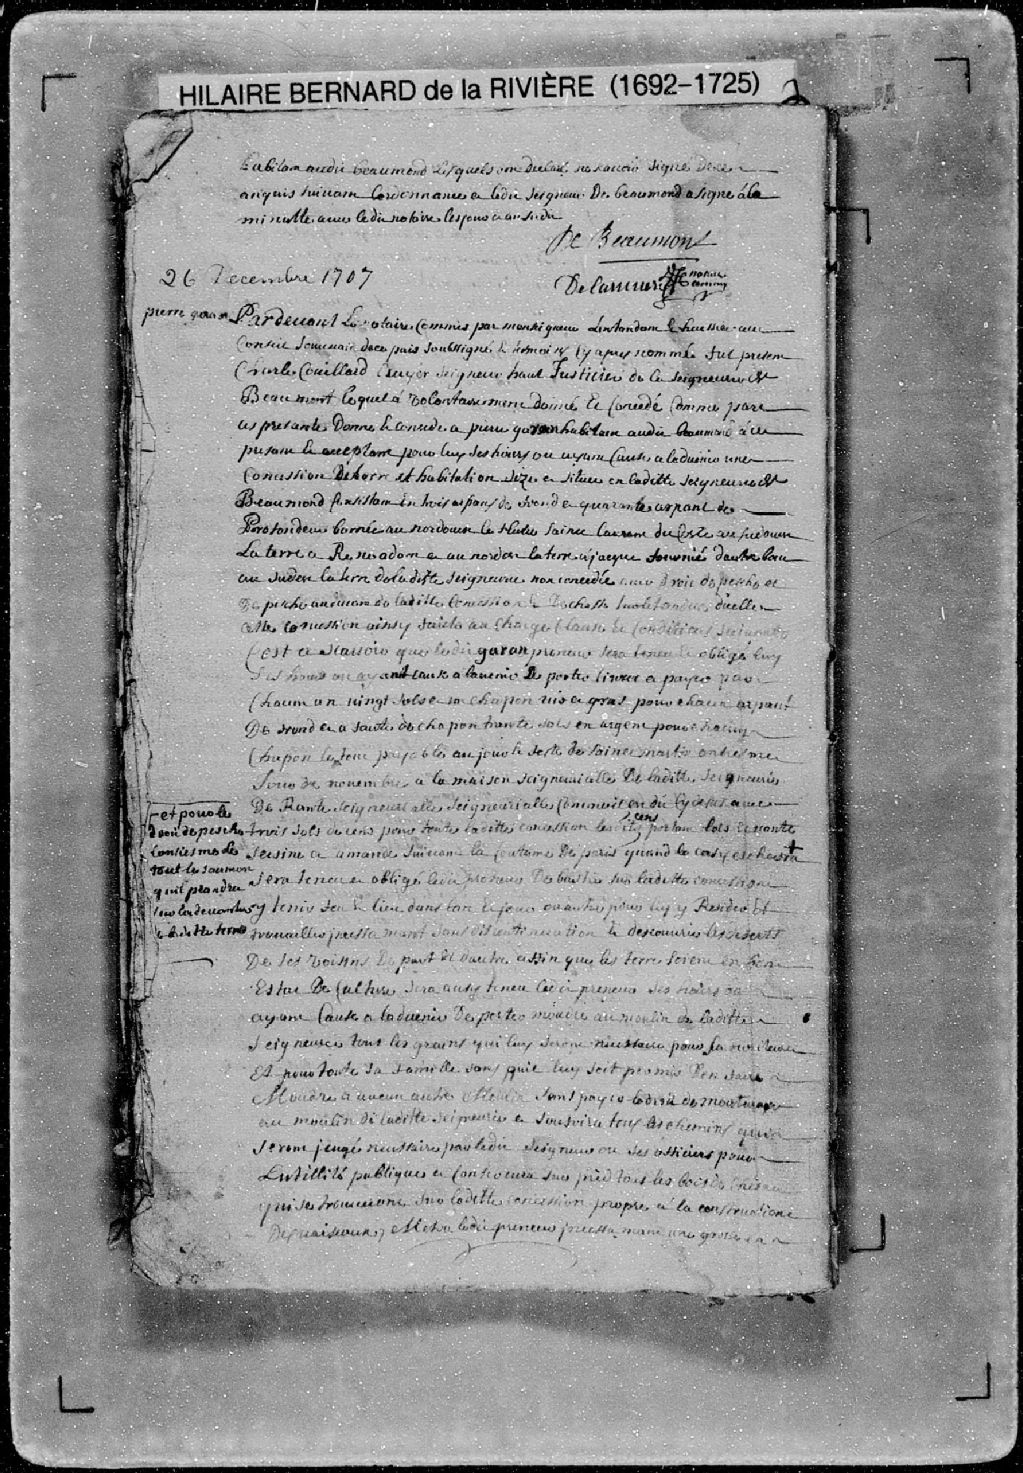 HILAIRE BERNARD de la RIVIÈRE (1692-1725)
habitam audit beaumond lesquels ont declaré ne savoir signé de ce
anquis suivam lordonnance et ledit seigneur De beaumond a signé a la
minutte avec ledit notaire les jour et an susdit
De Beaumont
26 Decembre 1707
Delariviere notaire
pierre garan
Pardevant Le notaire Commis par monseigneur Lintandam & huissier au
Conseil Souverain de ce païs soubssigné & temoins cy apres nommé fut presem
Charle Couillard Escuyer seigneur haut Justicier de la seigneurie de
Beaumont lequel a volontairement donné et Concedé Comme par
ces presante Donne & concede a pierre garan habitam audit beaumond a ce
presam & acceptam pour luy ses hoirs ou ayam Cause a ladvenir une
Concession De terre et habitation size et situee en laditte seigneurie de
Beaumond Consistam en trois arpans de frond et quarante arpant de
Profondeur bornée au nordouest le fleuve sainct Laurem du Costé au sudouest
La terre a Rene adam et au nordest la terre a jacque fournié d'autre bou
au sudest la terre de laditte seigneurie non concedée avec droit de pesche
De pesche au devam de laditte Concession & De chasse dicelle
cette concession ainsy faicte au Charge Clause et Conditions suivante
Cest a scavoir que ledit garan preneur sera tenu & obligé luy
ses hoirs ou ayant cause a ladvenir De porter livrer et payer par
Chacun an vingt sols et un chapon vif et gras pour chacun arpant
De frond et a faute de chapon trante sols en argem pour chacun
Chapon le tout payable au jour & feste de sainct martin onziesme
Jour de novembre a la maison seigneurialle De laditte seigneurie
De Rante seigneurialle Commme il en dit Cy dessus avec
trois sols de cens pour toute laditte concession lesdits cens portam lots & vante
seisine et amande suivam la coutume De paris quand le cas y escherra
sera tenu et obligé ledit preneur De bastir sur laditte concession
y tenir feu & lieu dans lan & jour ou autre pour luy y Resider et
travailler jncessamant sans discontinuation & descouvrir les deserts
De ses voisins De part & dautre affin que les terre soiem en bon
Estat De Culture sera aussy tenu ledit preneur ses hoirs ou
ayam Cause a ladvenir De porter moudre au moulin de laditte
seigneurie tout les grains qui luy serons necessaire pour sa nouriture
Et pour toute sa famille sans quil luy soit permis den faire
Moudre a aucun autre Moulin sans payer le droit de mouture
au moulin de laditte seigneurie et soufrira tous les chemins qui
serom jeugé necessaire par ledit seigneur ou ses officiers pour
Lutillité publique et Conservera sur pied tous les bois de chesne
qui se trouverons sur laditte concession propre a la construction
Des vaisseaux, Metra ledit preneur jncessamam une grosse
et pour le
droit de pesche
lonsiesme de
tout le saumon
quil prandra
sur la devanture
de laditte terre